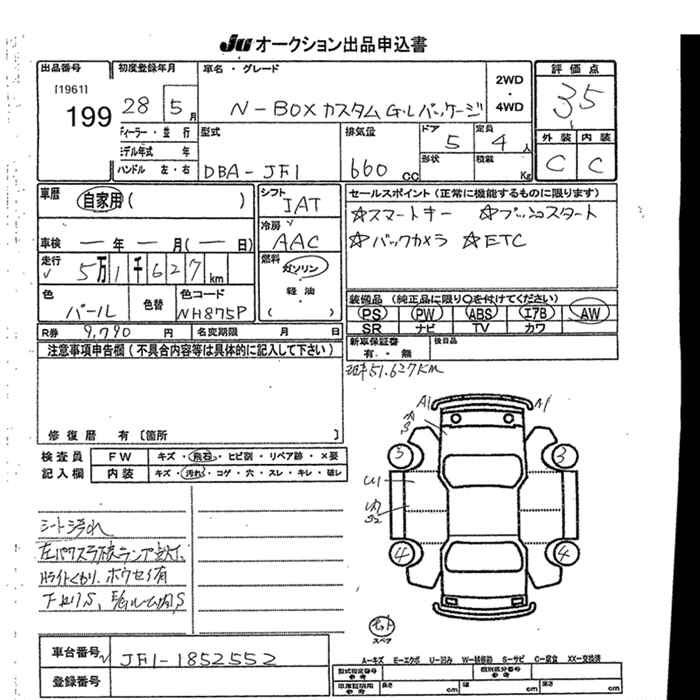 JU オークション出品申込書
出品番号 初度登録年月 車名・グレード 2WD ・ 4WD 評価点
[1961] 199 28 5月 N-BOXカスタムG・Lパッケージ 3.5
ディーラー・並行 型式 排気量 ドア 5 定員 4人 外装 内装
モデル年式 年 形状 積載 Kg C C
ハンドル 左・右 DBA-JF1 660 CC
車歴 自家用( ) シフト IAT セールスポイント(正常に機能するものに限ります)
☆スマートキー ☆プッシュスタート
車検 ー年ー月(ー日) 冷房 AAC ☆バックカメラ ☆ETC
走行 5万1千627km 燃料 ガソリン
軽油
( )
色 パール 色替 色コード NH875P 装備品(純正品に限り○を付けてください)
PS PW ABS エアB AW
SR ナビ TV カワ
R券 9,790円 名変期限 月 日 新車保証書 有・無 後日品
注意事項申告欄(不具合内容等は具体的に記入して下さい)
51.627KM
修復歴 有〔箇所 〕
検査員 FW キズ・飛石・ヒビ割・リペア跡・×要
記入欄 内装 キズ・汚れ・コゲ・穴・スレ・キレ・破レ
A1 A1
3 3
U1
S2
4 4
シート汚れ
ライトくもり、ホウセイ有
スペア
車台番号 JF1-1852552
A-キズ E-エクボ U-凹み W-補修跡 S-サビ C-腐食 XX-交換済
型式指定番号 参考 類別区分番号 参考
登録番号 車庫証明用 参考 長さ cm 幅 cm 高さ cm